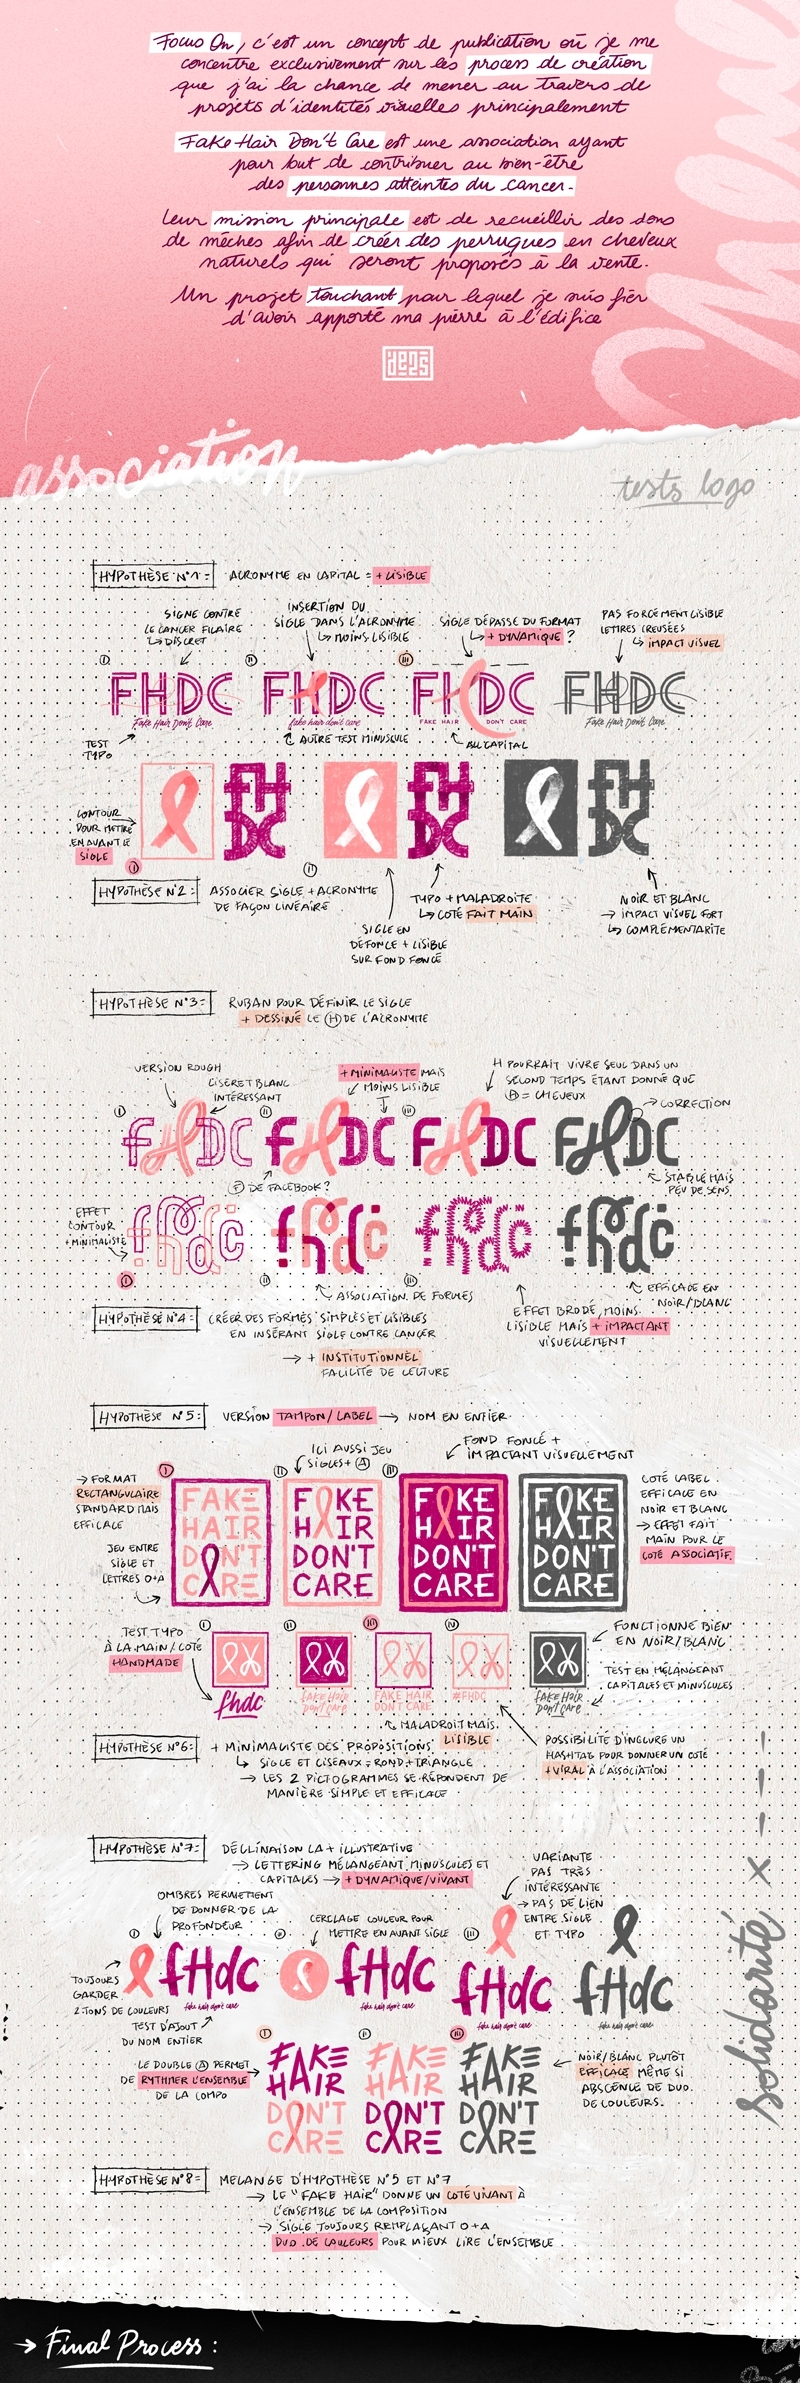 Focus On, c'est un concept de publication où je me
concentre exclusivement sur les process de création
que j'ai la chance de mener au travers de
projets d'identités visuelles principalement
Fake Hair Don't Care est une association ayant
pour but de contribuer au bien-être
des personnes atteintes du cancer.
Leur mission principale est de recueillir des dons
de mèches afin de créer des perruques en cheveux
naturels qui seront proposés à la vente.
Un projet touchant pour lequel je suis fier
d'avoir apporté ma pierre à l'édifice
association
tests logo
HYPOTHÈSE N°1 =
ACRONYME EN CAPITAL = + LISIBLE
SIGNE CONTRE
LE CANCER FILAIRE
↳ DISCRET
INSERTION DU
SIGLE DANS L'ACRONYME
↳ MOINS LISIBLE
SIGLE DÉPASSE DU FORMAT
↳ + DYNAMIQUE ?
PAS FORCÉMENT LISIBLE
LETTRES CREUSÉES
↳ IMPACT VISUEL
I
II
III
FHDC
Fake Hair Don't Care
FHDC
fake hair don't care
FHDC
FAKE HAIR DON'T CARE
FHDC
Fake Hair Don't Care
TEST
TYPO
AUTRE TEST MINUSCULE
ALL CAPITAL
FH
DC
FH
DC
FH
DC
CONTOUR
POUR METTRE
EN AVANT LE
SIGLE
I
II
HYPOTHÈSE N°2 =
ASSOCIER SIGLE + ACRONYME
DE FAÇON LINÉAIRE
SIGLE EN
DÉFONCE + LISIBLE
SUR FOND FONCÉ
TYPO + MALADROITE
↳ COTÉ FAIT MAIN
NOIR ET BLANC
→ IMPACT VISUEL FORT
↳ COMPLÉMENTARITÉ
HYPOTHÈSE N°3 =
RUBAN POUR DÉFINIR LE SIGLE
+ DESSINÉ LE H DE L'ACRONYME
VERSION ROUGH
LISERET BLANC
INTÉRESSANT
+ MINIMALISTE MAIS
MOINS LISIBLE
H POURRAIT VIVRE SEUL DANS UN
SECOND TEMPS ÉTANT DONNÉ QUE
H = CHEVEUX
CORRECTION
I
II
III
fHDC
fHDC
FHDC
FHDC
F DE FACEBOOK ?
STABLE MAIS
PEU DE SENS
EFFET
CONTOUR
+ MINIMALISTE
fhdc
fhdc
fhdc
fhdc
I
II
III
ASSOCIATION DE FORMES
EFFET BRODÉ, MOINS
LISIBLE MAIS + IMPACTANT
VISUELLEMENT
EFFICACE EN
NOIR/BLANC
HYPOTHÈSE N°4 =
CRÉER DES FORMES SIMPLES ET LISIBLES
EN INSÉRANT SIGLE CONTRE CANCER
→ + INSTITUTIONNEL
FACILITÉ DE LECTURE
HYPOTHÈSE N°5 =
VERSION TAMPON/LABEL → NOM EN ENTIER
ICI AUSSI JEU
SIGLES + A
FOND FONCÉ +
IMPACTANT VISUELLEMENT
→ FORMAT
RECTANGULAIRE
STANDARD MAIS
EFFICACE
JEU ENTRE
SIGLE ET
LETTRES O + A
I
II
III
FAKE
HAIR
DON'T
CARE
FAKE
HAIR
DON'T
CARE
FAKE
HAIR
DON'T
CARE
FAKE
HAIR
DON'T
CARE
COTÉ LABEL
EFFICACE EN
NOIR ET BLANC
→ EFFET FAIT
MAIN POUR LE
COTÉ ASSOCIATIF.
TEST TYPO
À LA MAIN / COTÉ
HANDMADE
I
II
III
IV
fhdc
FAKE HAIR
DON'T CARE
FAKE HAIR
DON'T CARE
#FHDC
FAKE HAIR
DON'T CARE
FONCTIONNE BIEN
EN NOIR/BLANC
TEST EN MÉLANGEANT
CAPITALES ET MINUSCULES
MALADROIT MAIS
LISIBLE
HYPOTHÈSE N°6 =
+ MINIMALISTE DES PROPOSITIONS
↳ SIGLE ET CISEAUX = ROND + TRIANGLE
→ LES 2 PICTOGRAMMES SE RÉPONDENT DE
MANIÈRE SIMPLE ET EFFICACE
POSSIBILITÉ D'INCLURE UN
HASHTAG POUR DONNER UN COTÉ
+ VIRAL À L'ASSOCIATION
HYPOTHÈSE N°7 =
DÉCLINAISON LA + ILLUSTRATIVE
→ LETTERING MÉLANGEANT MINUSCULES ET
CAPITALES → + DYNAMIQUE/VIVANT
OMBRES PERMETTENT
DE DONNER DE LA
PROFONDEUR
CERCLAGE COULEUR POUR
METTRE EN AVANT SIGLE
VARIANTE
PAS TRÈS
INTÉRESSANTE
→ PAS DE LIEN
ENTRE SIGLE
ET TYPO
I
II
III
fHdc
fake hair don't care
fHdc
fake hair don't care
fHdc
fake hair don't care
fHdc
fake hair don't care
TOUJOURS
GARDER
2 TONS DE COULEURS
TEST D'AJOUT
DU NOM ENTIER
LE DOUBLE A PERMET
DE RYTHMER L'ENSEMBLE
DE LA COMPO
I
II
III
FAKE
HAIR
DON'T
CARE
FAKE
HAIR
DON'T
CARE
FAKE
HAIR
DON'T
CARE
NOIR/BLANC PLUTÔT
EFFICACE MÊME SI
ABSCENCE DE DUO
DE COULEURS.
solidarité x
HYPOTHÈSE N°8 =
MELANGE D'HYPOTHÈSE N°5 ET N°7
→ LE "FAKE HAIR" DONNE UN COTÉ VIVANT À
L'ENSEMBLE DE LA COMPOSITION
→ SIGLE TOUJOURS REMPLAÇANT O + A
DUO DE COULEURS POUR MIEUX LIRE L'ENSEMBLE
→ Final Process :